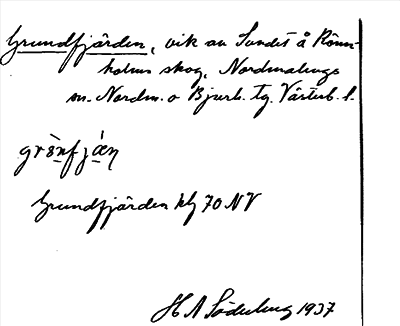 Grundfjärden, vik av Sundet å Rönn-
holms skog, Nordmalings
sn. Nordm. o Bjurh. tg. Västerb. l.
Grundfjärden kbl 70 NV
H N Söderberg 1937